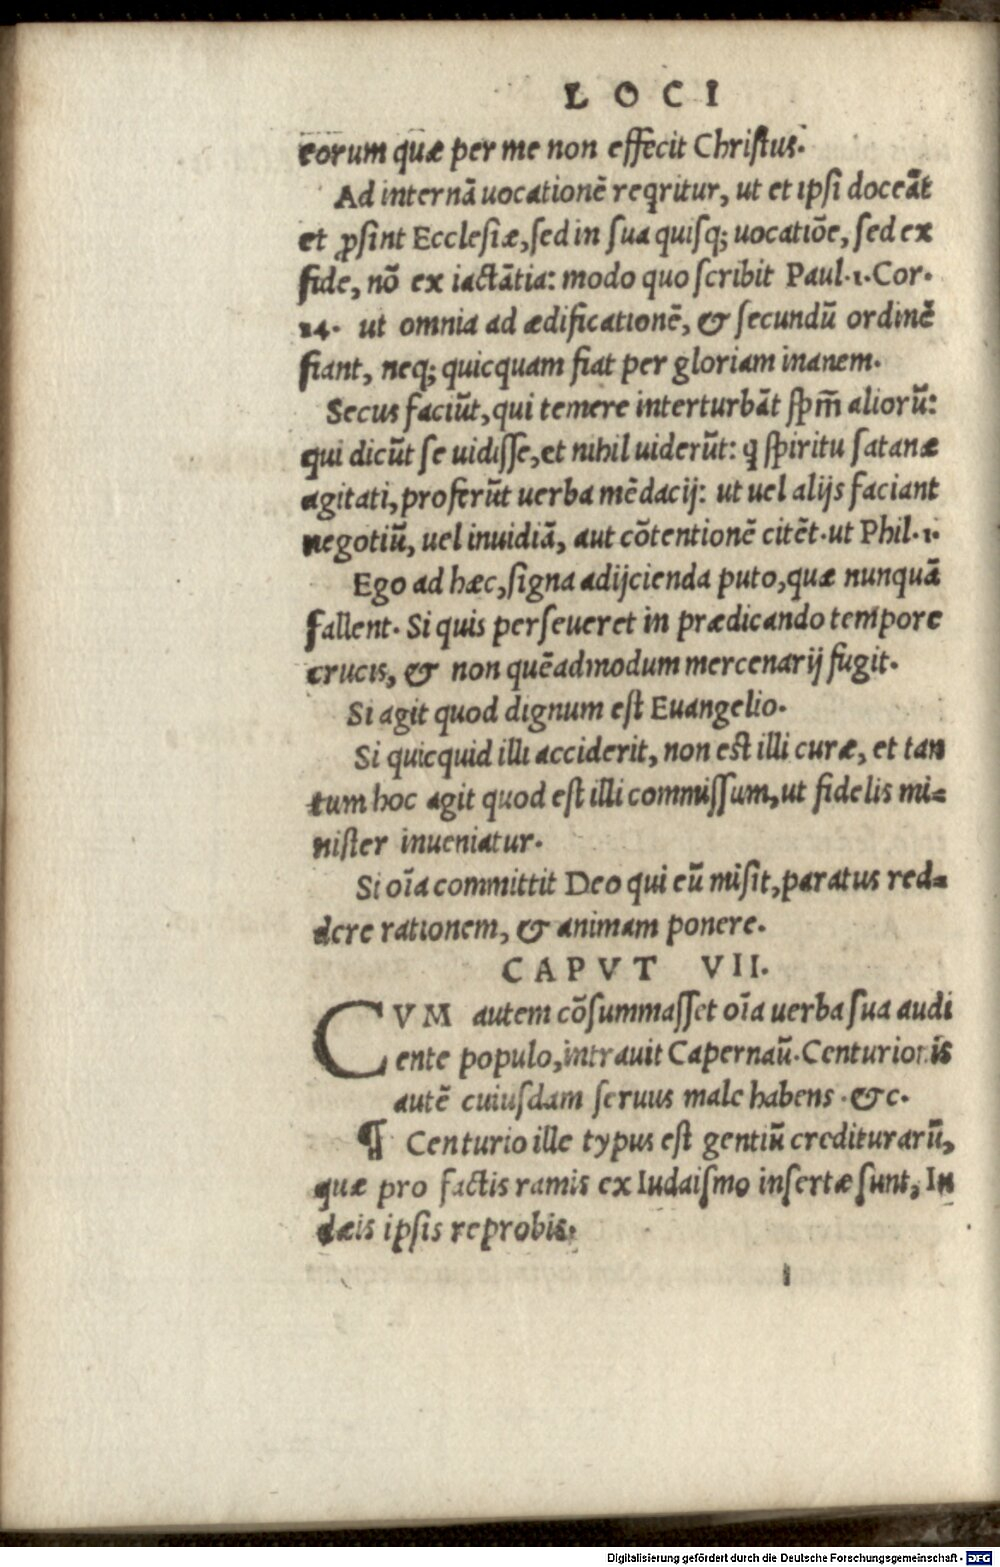 LOCI
eorum quæ per me non effecit Christus.
Ad internā uocationē reqritur, ut et ipsi doceāt
et ꝓsint Ecclesiæ, sed in sua quisq; uocatiōe, sed ex
fide, nō ex iactātia: modo quo scribit Paul.1.Cor.
14. ut omnia ad ædificationē, & secundū ordinē
fiant, neq; quicquam fiat per gloriam inanem.
Secus faciūt, qui temere interturbāt spm̄ aliorū:
qui dicūt se uidisse, et nihil uiderūt: q spiritu satanæ
agitati, proferūt uerba mēdacij: ut uel alijs faciant
negotiū, uel inuidiā, aut cōtentionē citēt. ut Phil.1.
Ego ad hæc, signa adijcienda puto, quæ nunquā
fallent. Si quis perseueret in prædicando tempore
crucis, & non quēadmodum mercenarij fugit.
Si agit quod dignum est Euangelio.
Si quicquid illi acciderit, non est illi curæ, et tan
tum hoc agit quod est illi commissum, ut fidelis mi=
nister inueniatur.
Si oīa committit Deo qui eū misit, paratus red=
dere rationem, & animam ponere.
CAPVT VII.
CVM autem cōsummasset oīa uerba sua audi
ente populo, intrauit Capernaū. Centurionis
autē cuiusdam seruus male habens. &c.
¶ Centurio ille typus est gentiū crediturarū,
quæ pro factis ramis ex Iudaismo insertæ sunt, Iu
dæis ipsis reprobis.
Digitalisierung gefördert durch die Deutsche Forschungsgemeinschaft - DFG